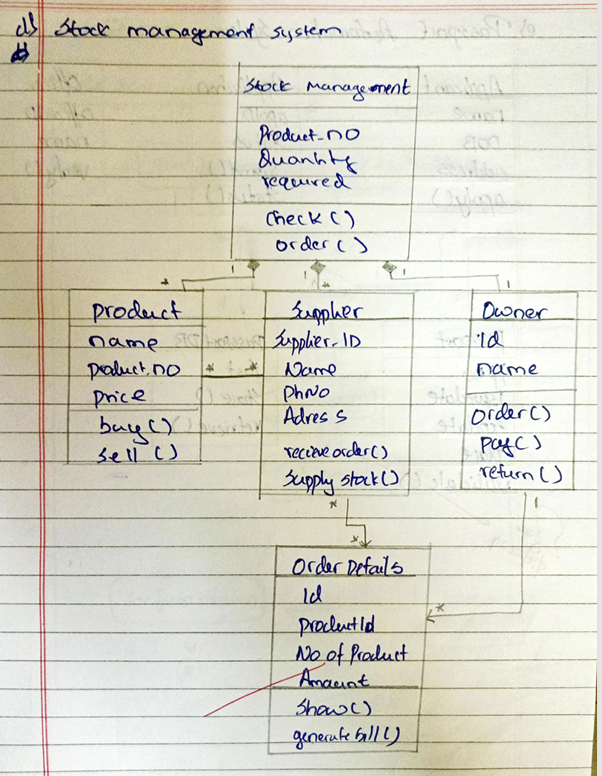 d) Stock management system
Stock Management
Product_no
Quantity
required
check()
order()
1 1 1
* * 1
product
name
product_no
price
buy()
sell()
* *
Supplier
Supplier_ID
Name
PhNo
Adress
recieve order()
Supply stock()
Owner
id
name
order()
pay()
return()
* 1
*
*
Order Details
Id
ProductId
No of Product
Amount
Show()
generate bill()